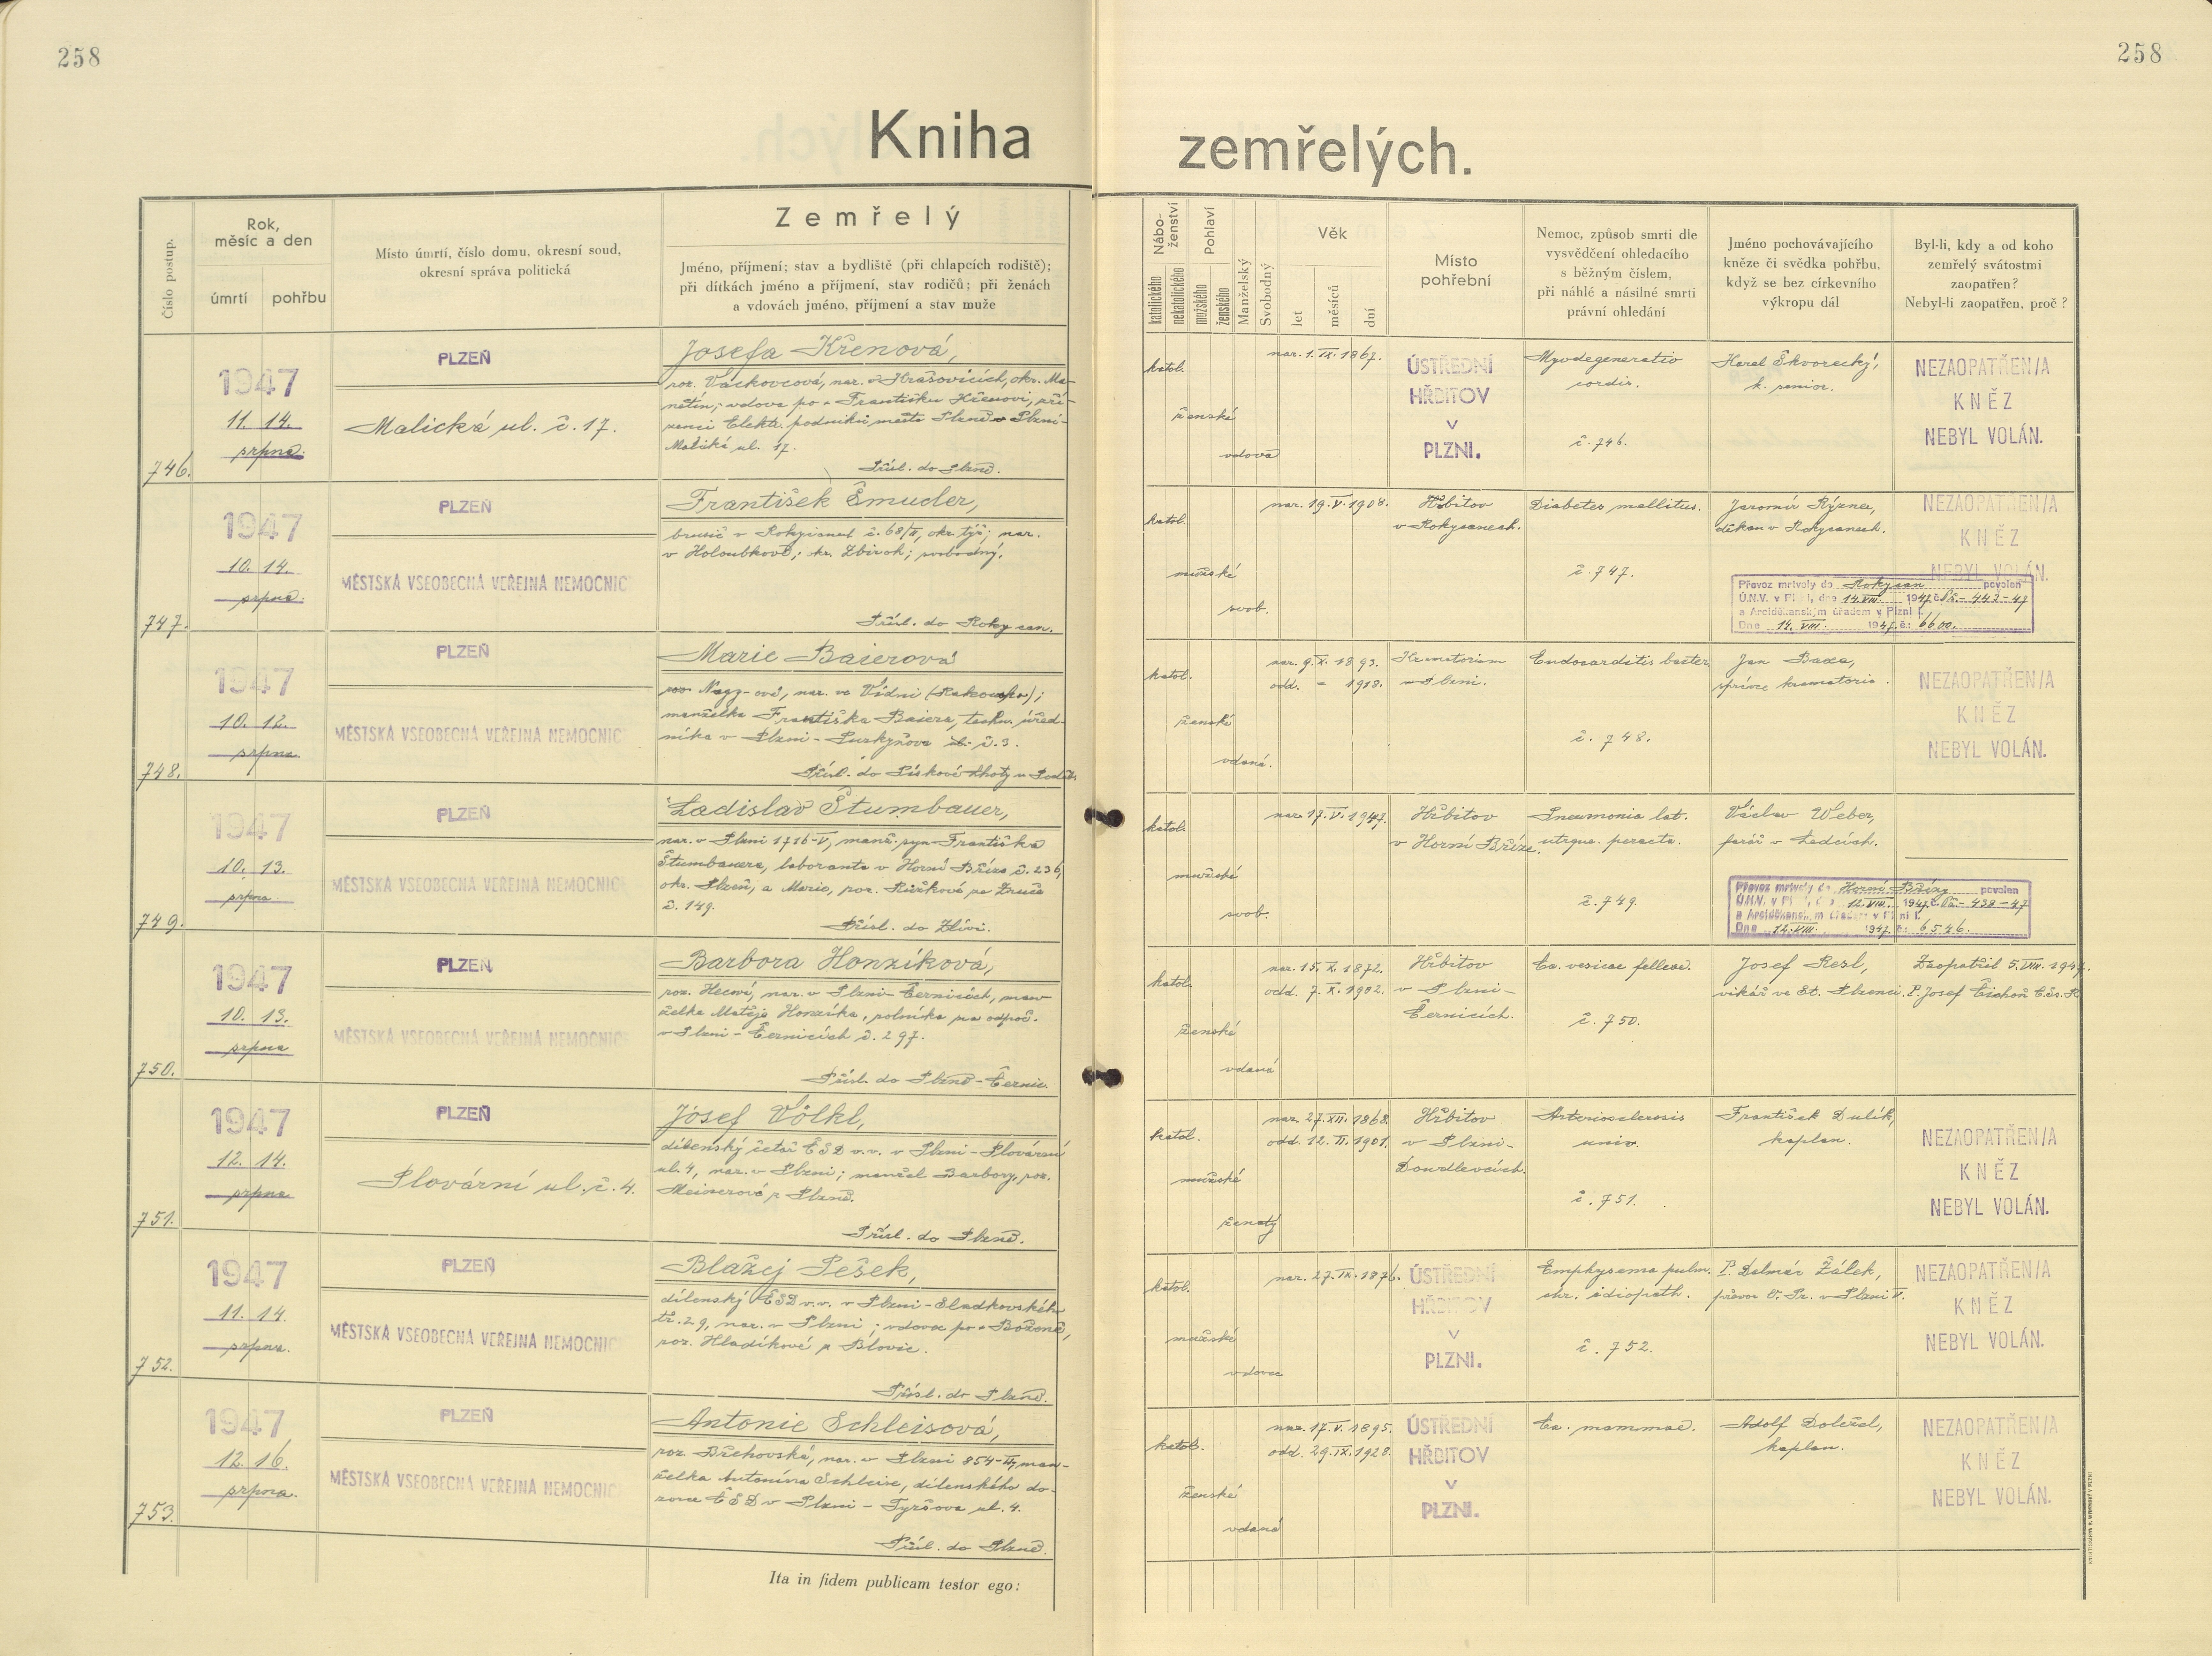 258
258
Kniha
zemřelých.
Číslo postup.
Rok,
měsíc a den
úmrtí
pohřbu
Místo úmrtí, číslo domu, okresní soud,
okresní správa politická
Zemřelý
Jméno, příjmení; stav a bydliště (při chlapcích rodiště);
při dítkách jméno a příjmení, stav rodičů; při ženách
a vdovách jméno, příjmení a stav muže
Nábo-
ženství
katolického
nekatolického
Pohlaví
mužského
ženského
Manželský
Svobodný
Věk
let
měsíců
dní
Místo
pohřební
Nemoc, způsob smrti dle
vysvědčení ohledacího
s běžným číslem,
při náhlé a násilné smrti
právní ohledání
Jméno pochovávajícího
kněze či svědka pohřbu,
když se bez církevního
výkropu dál
Byl-li, kdy a od koho
zemřelý svátostmi
zaopatřen?
Nebyl-li zaopatřen, proč?
746.
1947
11. 14.
srpna.
PLZEŇ
Malická ul. č. 17.
Josefa Křenová,
roz. Vackovcová, nar. v Hrašovicích, okr. Ma-
nětín; vdova po + Františku Křenovi, zří-
zenci Elektr. podniků města Plzně v Plzni-
Malická ul. 17.
Přísl. do Plzně.
katol.
ženské
vdova
nar. 1. IX. 1867.
ÚSTŘEDNÍ
HŘBITOV
V
PLZNI.
Myodegeneratio
cordis.
č. 746.
Karel Škvorecký,
k. senior.
NEZAOPATŘEN/A
KNĚZ
NEBYL VOLÁN.
747.
1947
10. 14.
srpna.
PLZEŇ
MĚSTSKÁ VŠEOBECNÁ VEŘEJNÁ NEMOCNIC
František Šmucler,
brusič v Rokycanech č. 68/II, okr. týž; nar.
v Holoubkově, okr. Zbiroh; svobodný.
Přísl. do Rokycan.
katol.
mužské
svob.
nar. 19. V. 1908.
Hřbitov
v Rokycanech.
Diabetes mellitus.
č. 747.
Jaromír Rýzner,
děkan v Rokycanech.
NEZAOPATŘEN/A
KNĚZ
NEBYL VOLÁN.
Převoz mrtvoly do Rokycan povolen
Ú.N.V. v Plzni, dne 14. VIII. 1947 č. Vš.- 443-47
a Arciděkanským úřadem v Plzni I.
Dne 14. VIII. 1947 č.: 6600.
748.
1947
10. 12.
srpna.
PLZEŇ
MĚSTSKÁ VŠEOBECNÁ VEŘEJNÁ NEMOCNIC
Marie Baierová
roz. Nagy-ová, nar. ve Vídni (Rakousko);
manželka Františka Baiera, techn. úřed-
níka v Plzni - Purkyňova ul. č. 3.
Přísl. do Pískové Lhoty u Poděb.
katol.
ženské
vdaná.
nar. 9. X. 1893.
odd. - 1918.
Krematorium
v Plzni.
Endocarditis bacter.
č. 748.
Jan Baxa,
správce krematoria.
NEZAOPATŘEN/A
KNĚZ
NEBYL VOLÁN.
749.
1947
10. 13.
srpna.
PLZEŇ
MĚSTSKÁ VŠEOBECNÁ VEŘEJNÁ NEMOCNIC
Ladislav Štumbauer,
nar. v Plzni 1716-V, manž. syn Františka
Štumbauera, laboranta v Horní Bříze č. 236,
okr. Plzeň, a Marie, roz. Růžkové ze Zruče
č. 149.
Přísl. do Zlivi.
katol.
mužské
svob.
nar. 17. VI. 1947.
Hřbitov
v Horní Bříze.
Pneumonia lat.
utrque. peracta.
č. 749.
Václav Weber,
farář v Ledcích.
Převoz mrtvoly do Horní Břízy povolen
Ú.N.V. v Plzni, dne 12. VIII. 1947 č. Vš.- 438-47
a Arciděkanským úřadem v Plzni I.
Dne 12. VIII. 1947 č.: 6546.
750.
1947
10. 13.
srpna
PLZEŇ
MĚSTSKÁ VŠEOBECNÁ VEŘEJNÁ NEMOCNIC
Barbora Honzíková,
roz. nar. v Plzni-Černicích, man-
želka Matěje Honzíka, rolníka na odpoč.
v Plzni - Černicích č. 297.
Přísl. do Plzně-Černic.
katol.
ženské
vdaná
nar. 15. X. 1872.
odd. 7. X. 1902.
Hřbitov
v Plzni-
Černicích.
Ca. vesicae felleae.
č. 750.
Josef Resl,
vikář ve St. Plzenci.
Zaopatřil 5. VIII. 1947.
P. Josef Čichoň
751.
1947
12. 14.
srpna
PLZEŇ
Plovární ul. č. 4.
Josef Völkl,
dílenský četař ČSD v.v. v Plzni - Plovární
ul. 4, nar. v Plzni; manžel Barbory, roz.
Meisnerové z Plzně.
Přísl. do Plzně.
katol.
mužské
ženatý
nar. 27. XII. 1868.
odd. 12. II. 1901.
Hřbitov
v Plzni-
Doudlevcích.
Arteriosclerosis
univ.
č. 751.
František Dulík,
kaplan.
NEZAOPATŘEN/A
KNĚZ
NEBYL VOLÁN.
752.
1947
11. 14.
srpna.
PLZEŇ
MĚSTSKÁ VŠEOBECNÁ VEŘEJNÁ NEMOCNIC
Blažej Pešek,
dílenský ČSD v.v. v Plzni - Sladkovského
tř. 29, nar. v Plzni; vdovec po + Boženě,
roz. Hladíkové z Blovic.
Přísl. do Plzně.
katol.
mužské
vdovec
nar. 27. IX. 1876.
ÚSTŘEDNÍ
HŘBITOV
V
PLZNI.
Emphysema pulm.
chr. idiopath.
č. 752.
P. Dalmár Žálek,
převor O. Pr. v Plzni V.
NEZAOPATŘEN/A
KNĚZ
NEBYL VOLÁN.
753.
1947
12. 16.
srpna.
PLZEŇ
MĚSTSKÁ VŠEOBECNÁ VEŘEJNÁ NEMOCNIC
Antonie Schleisová,
roz. Břehovská, nar. v Plzni 854-II, man-
želka Antonína Schleise, dílenského do-
zorce ČSD v Plzni - Tyršova ul. 4.
Přísl. do Plzně.
katol.
ženské
vdaná
nar. 17. V. 1895.
odd. 29. IX. 1928.
ÚSTŘEDNÍ
HŘBITOV
V
PLZNI.
Ca. mammae.
Adolf Doležal,
kaplan.
NEZAOPATŘEN/A
KNĚZ
NEBYL VOLÁN.
Ita in fidem publicam testor ego: